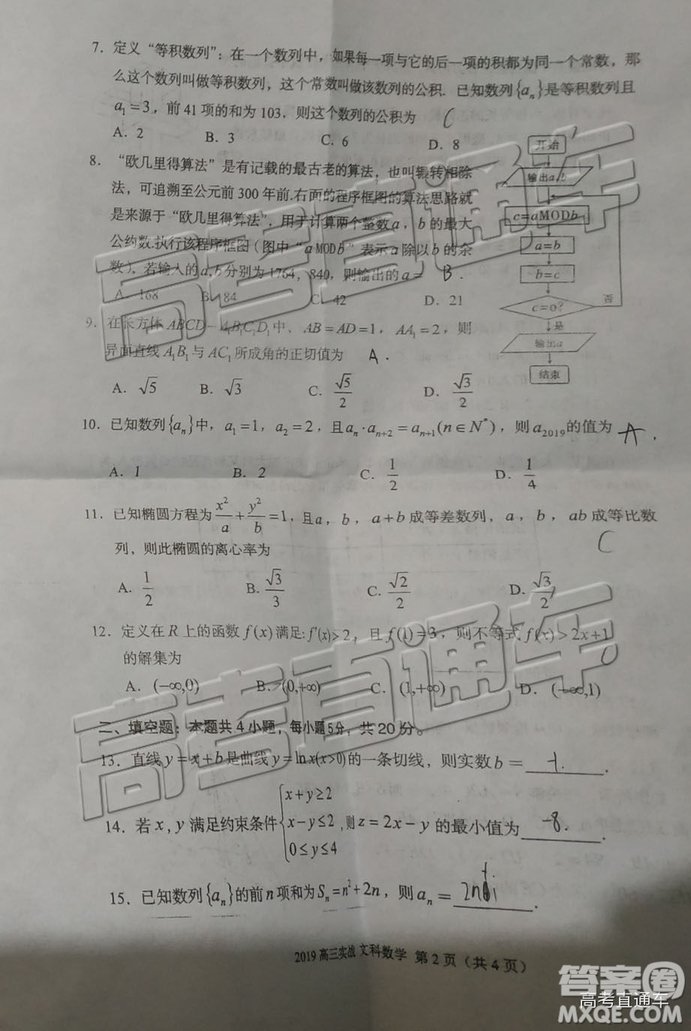 7. 定义“等积数列”：在一个数列中，如果每一项与它的后一项的积都为同一个常数，那
么这个数列叫做等积数列，这个常数叫做该数列的公积. 已知数列{aₙ}是等积数列且
a₁=3，前 41 项的和为 103，则这个数列的公积为 C
A. 2 B. 3 C. 6 D. 8
8. “欧几里得算法”是有记载的最古老的算法，也叫辗转相除
法，可追溯至公元前 300 年前.右面的程序框图的算法思路就
是来源于“欧几里得算法”，用于计算两个整数 a，b 的最大
公约数.执行该程序框图（图中“a MOD b”表示 a 除以 b 的余
数），若输入的 a,b 分别为 1764，840，则输出的 a= B.
A. 168 B. 84 C. 42 D. 21
开始
c=aMODb
a=b
b=c
c=0?
否
是
输出a
结束
9. 在长方体 ABCD－A₁B₁C₁D₁ 中，AB=AD=1，AA₁=2，则
异面直线 A₁B₁ 与 AC₁ 所成角的正切值为 A.
A. √5 B. √3 C. √5/2 D. √3/2
10. 已知数列{aₙ}中，a₁=1，a₂=2，且aₙ·aₙ₊₂=aₙ₊₁(n∈N*)，则 a₂₀₁₉ 的值为 A.
A. 1 B. 2 C. 1/2 D. 1/4
11. 已知椭圆方程为 x²/a+y²/b=1，且a，b，a+b 成等差数列，a，b，ab 成等比数
列，则此椭圆的离心率为 C
A. 1/2 B. √3/3 C. √2/2 D. √3/2
12. 定义在 R 上的函数 f(x) 满足: f′(x)>2，且 f(1)=3，则不等式 f(x)>2x+1
的解集为
A. (-∞,0) B. (0,+∞) C. (1,+∞) D. (-∞,1)
二、填空题：本题共 4 小题，每小题 5分，共 20 分。
13. 直线 y=x+b 是曲线 y=ln x(x>0) 的一条切线，则实数 b= -1.
14. 若 x,y 满足约束条件 {x+y≥2 x-y≤2 0≤y≤4，则 z=2x-y 的最小值为 -8.
15. 已知数列{aₙ}的前n项和为Sₙ=n²+2n，则 aₙ=
2019 高三实战 文科数学 第 2 页（共 4 页）
高考直通车
高考直通车
高考直通车
答案圈
高考直通车
MXQE.COM